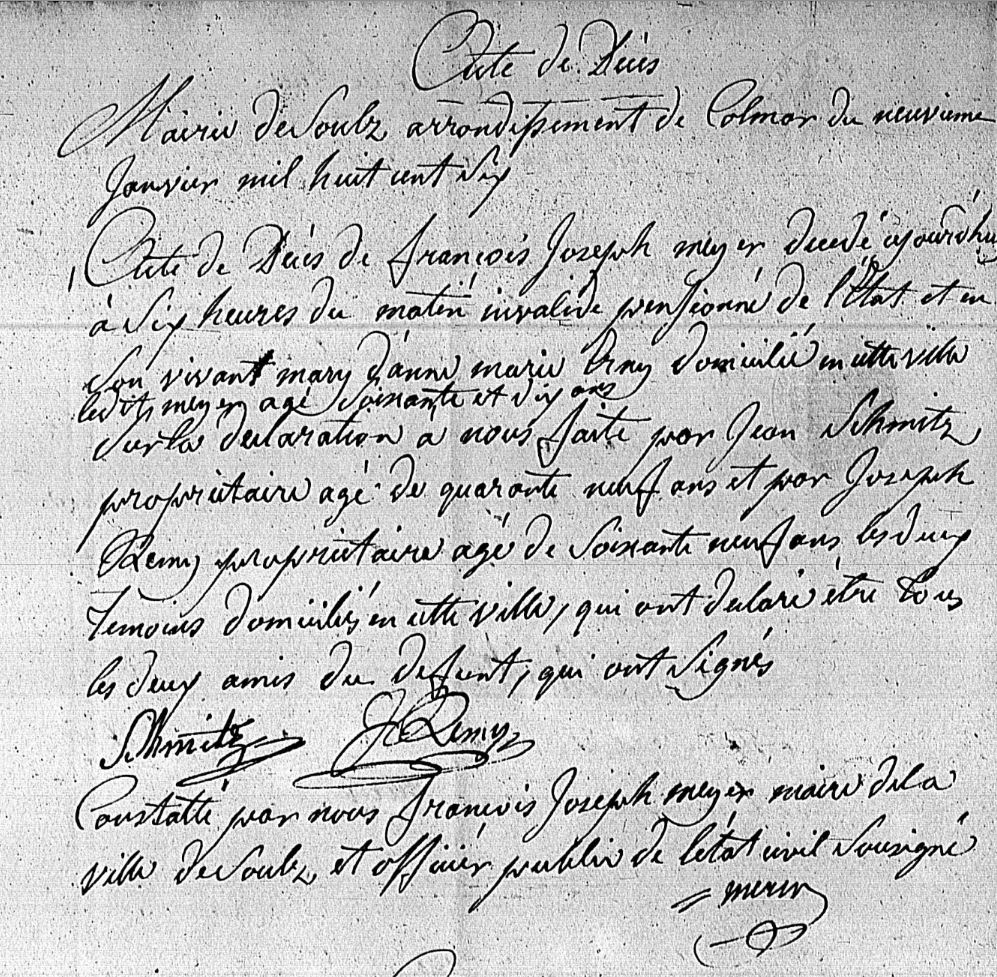 Acte de Décès
Mairie de Soulz arrondissement de Colmar du neuvieme
Janvier mil huit cent Six
Acte de Décès de françois Joseph meyer decedé ajourdhuy
à Six heures du matin invalide pensionné de l'État et en
Son vivant mary d'anne marie domicilié en cette ville
ledit meyer agé Soixante et dix ans
Sur la declaration a nous faite par Jean Schmitz
propriétaire agé de quarante neuf ans et par Joseph
Remy propriétaire agé de Soixante neuf ans les deux
Temoins domiciliés en cette ville, qui ont declaré être tous
les deux amis du defunt, qui ont Signés
Schmitz J Remy
Constatté par nous françois Joseph meyer maire de la
ville de Soulz et officier public de l'état civil Sousigné
= meyer